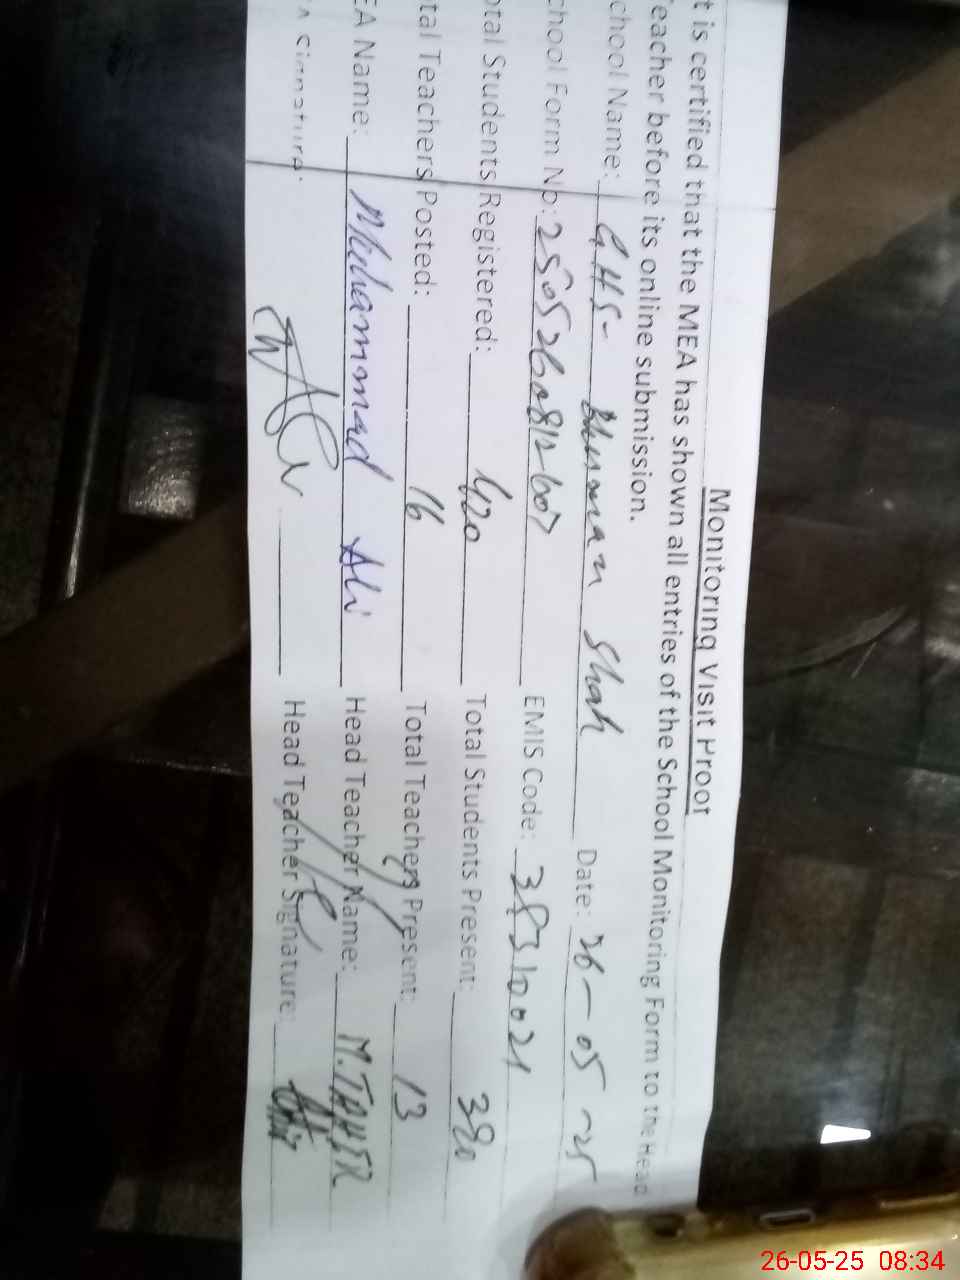 Monitoring Visit Proof
t is certified that the MEA has shown all entries of the School Monitoring Form to the Head
Teacher before its online submission.
chool Name: GHS- Bhuman Shah Date: 26-05-25
chool Form No: EMIS Code: 38310021
otal Students Registered: 420 Total Students Present: 380
tal Teachers Posted: 16 Total Teachers Present: 13
EA Name: Muhammad Ali Head Teacher Name: M. TAHIR
A Signature: Head Teacher Signature:
26-05-25 08:34